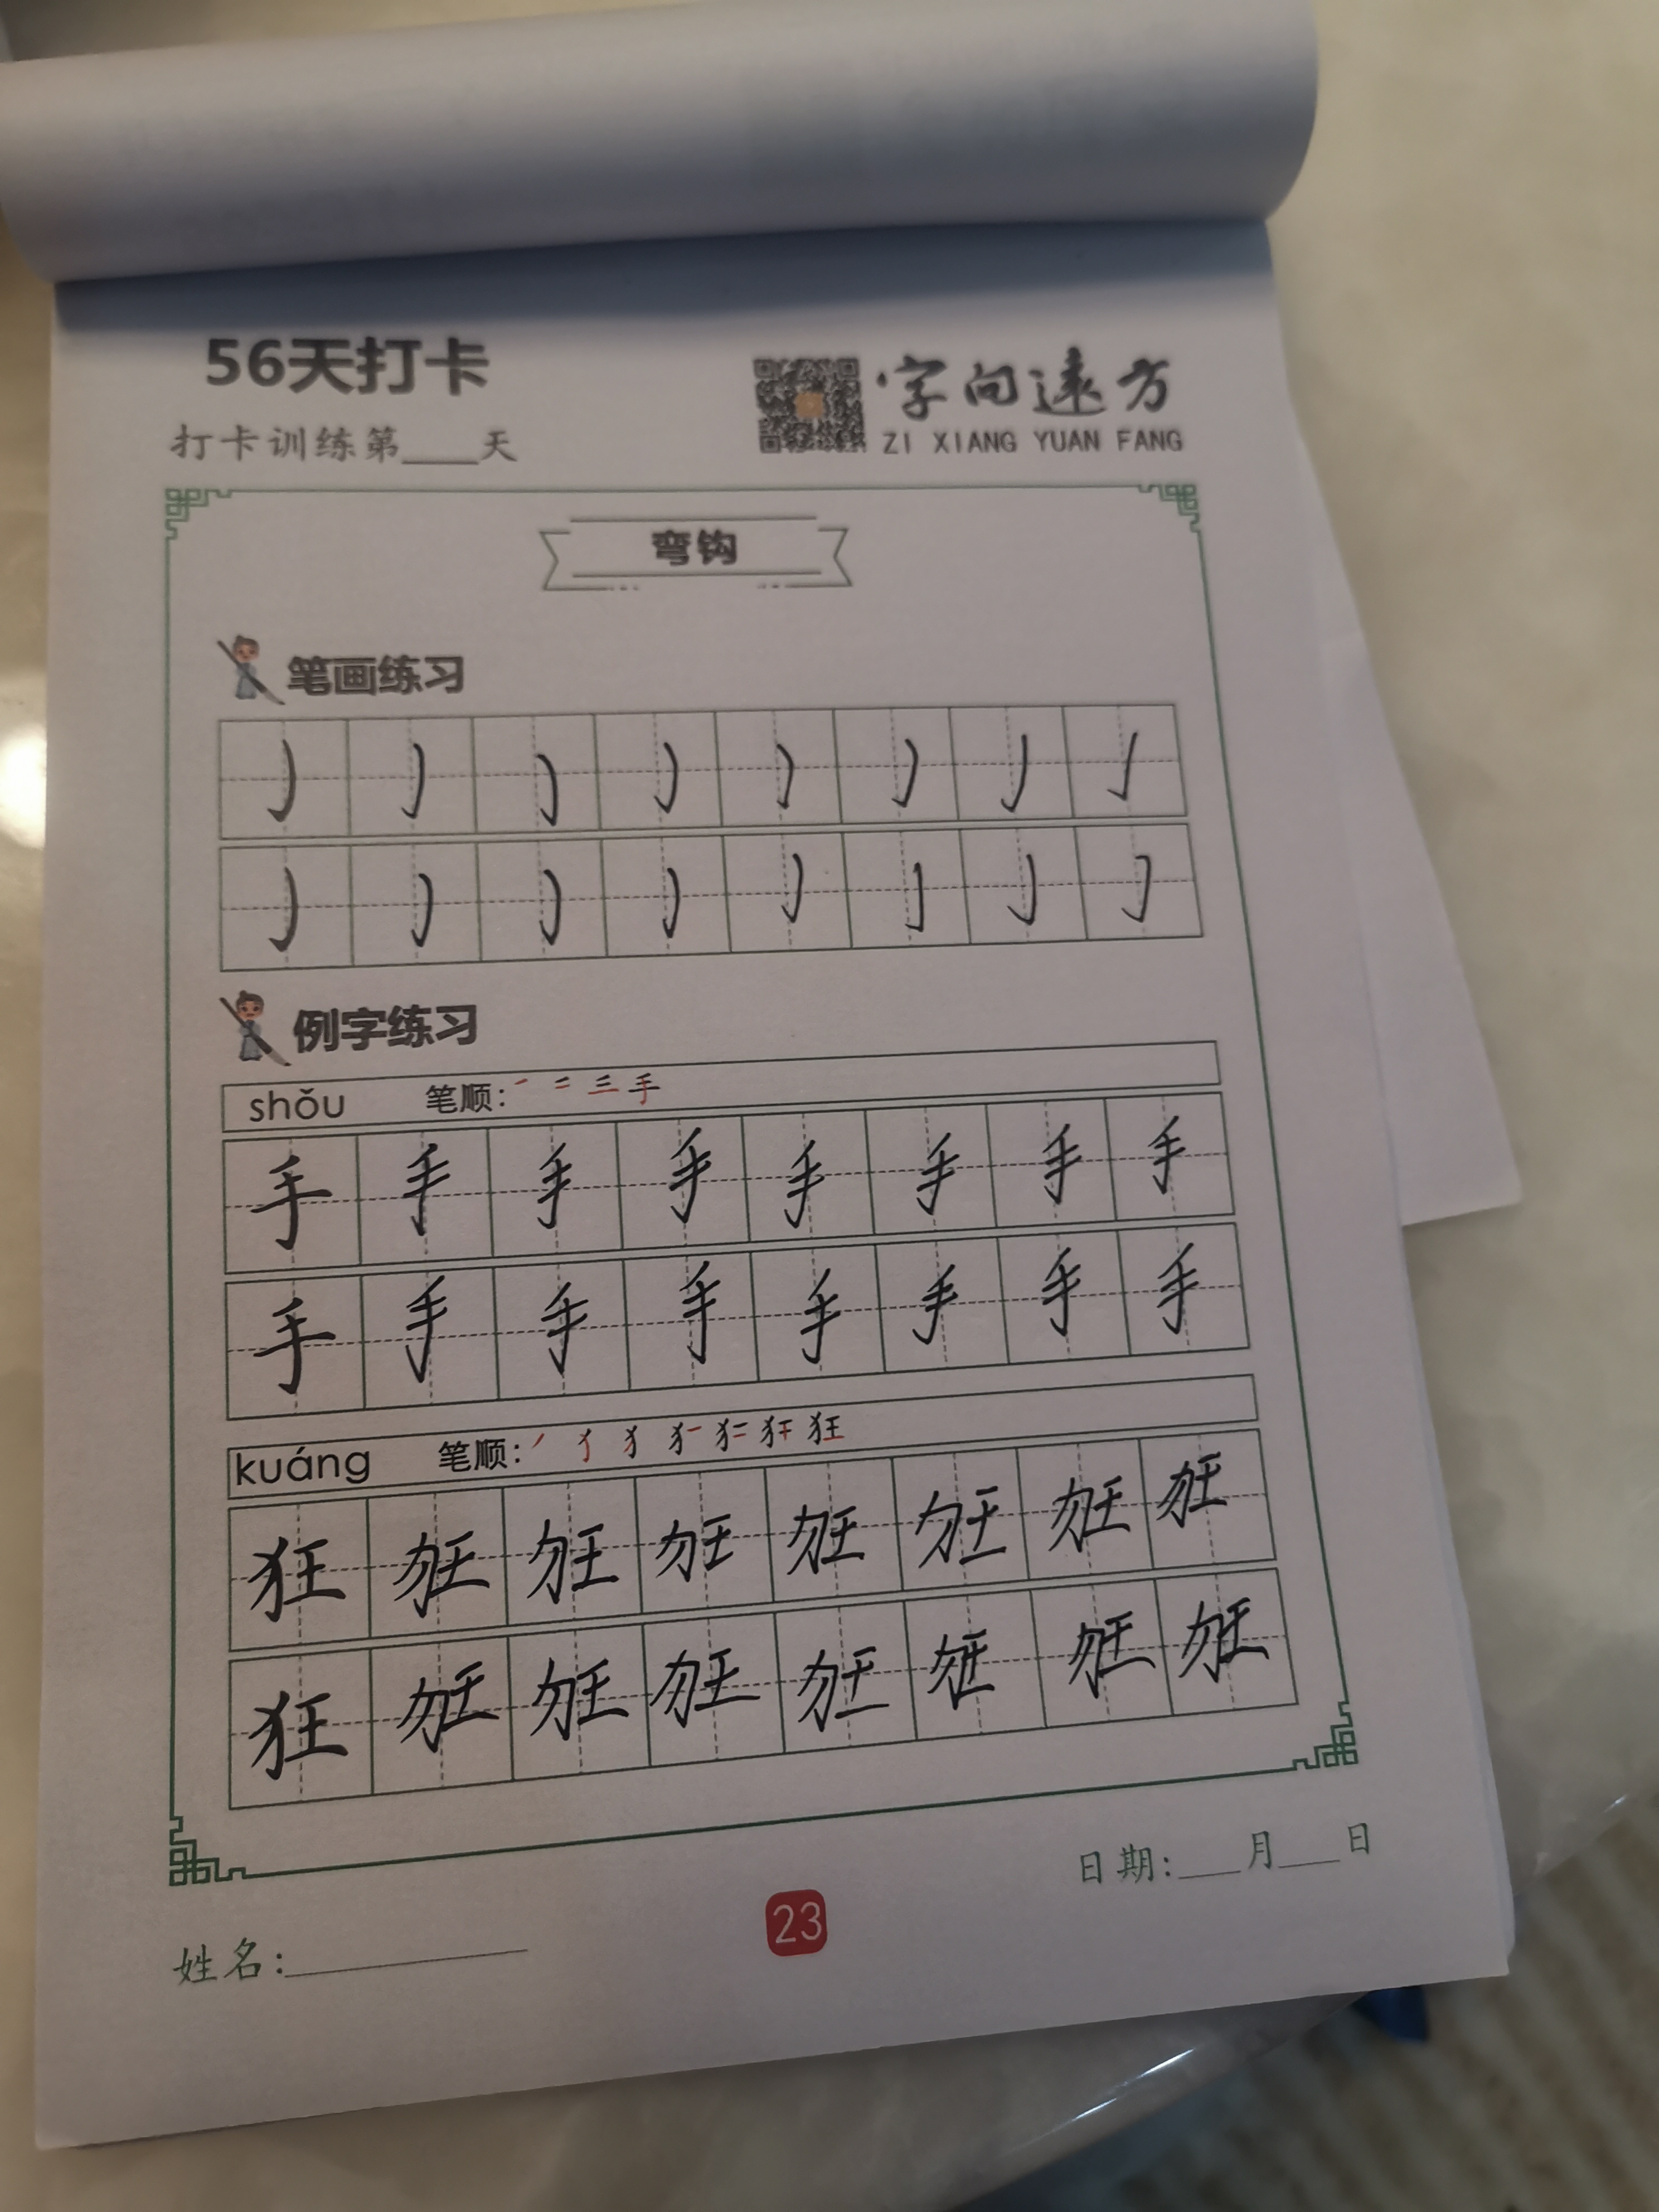 56天打卡
打卡训练第____天
字向远方
ZI XIANG YUAN FANG
弯钩
笔画练习
例字练习
shǒu 笔顺: 一 二 三 手
手 手 手 手 手 手 手 手
手 手 手 手 手 手 手 手
kuáng 笔顺: 狂
狂 狂 狂 狂 狂 狂 狂 狂
狂 狂 狂 狂 狂 狂 狂 狂
日期:___月___日
23
姓名: